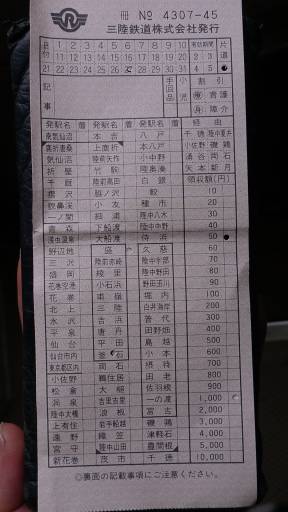 冊 № 4307-45
三陸鉄道株式会社発行
日付 1 2 3 4 5 6 7 8 9 10 有効期間 片道
11 12 13 14 15 16 17 18 19 20 2 3
21 22 23 24 25 26 27 28 29 30 31 4 5
記事 手回品 小児 割引
発 駅名 着 発 駅名 着 発 駅名 着 経由
南気仙沼 本吉 八戸 千徳 陸中夏井
上鹿折 本八戸 小佐野 磯鶏
気仙沼 陸前矢作 小中野 涌谷 両石
折壁 竹駒 陸奥湊 矢本 新月
千厩 陸前高田 白銀 領収額(円)
摺沢 脇ノ沢 鮫 10
猊鼻渓 小友 種市 20
一ノ関 細浦 陸中八木 30
下船渡 陸中中野 40
大船渡 侍浜 50
野辺地 盛 久慈 60
三沢 陸前赤崎 陸中宇部 70
盛岡 綾里 陸中野田 80
花巻空港 小石浜 野田玉川 90
花巻 甫嶺 堀内 100
北上 三陸 白井海岸 200
水沢 吉浜 普代 300
平泉 唐丹 田野畑 400
仙台 平田 島越 500
仙台市内 釜石 小本 600
東京都区内 両石 摂待 700
小佐野 鵜住居 田老 800
松倉 大槌 佐羽根 900
洞泉 吉里吉里 一の渡 1,000
陸中大橋 浪板 宮古 2,000
上有住 岩手船越 磯鶏 3,000
遠野 織笠 津軽石 4,000
宮守 陸中山田 豊間根 5,000
新花巻 茂市 千徳 10,000
◎裏面の記載事項にご注意ください。